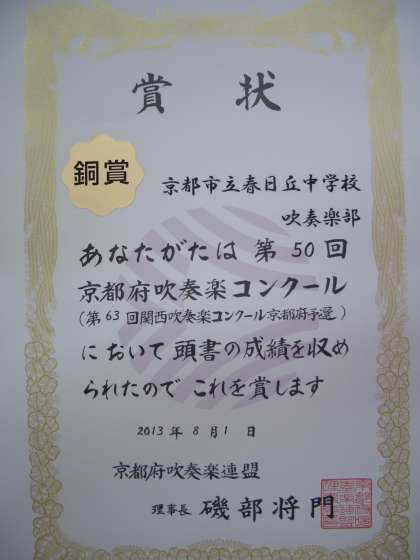 賞状
銅賞
京都市立春日丘中学校
吹奏楽部
あなたがたは第50回
京都府吹奏楽コンクール
(第63回関西吹奏楽コンクール京都府予選)
において頭書の成績を収め
られたのでこれを賞します
2013年8月1日
京都府吹奏楽連盟
理事長 磯部将門